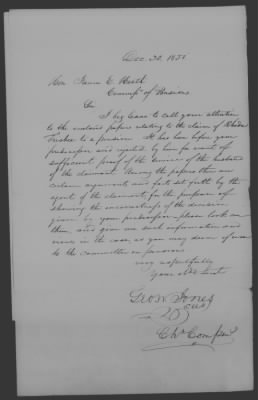 Dec 30, 1851
Hon James E. Heath
Commr of Pensions
Sir
I beg leave to call your attention
to the enclosed papers relating to the claim of Rhoda
to a pension. It has been before your
predecessor and rejected by him for want of
sufficient proof of the service of the husband
of the claimant. Among the papers there are
certain arguments and facts set forth by the
agent of the claimant, for the purpose of
showing the incorrectness of the decision
given by your predecessor - please look over
them and give me such information and
views in the case, as you may deem of use
to the committee on pensions
very respectfully
Your Obt Servt
Geo W. Jones
Chn Com Pens